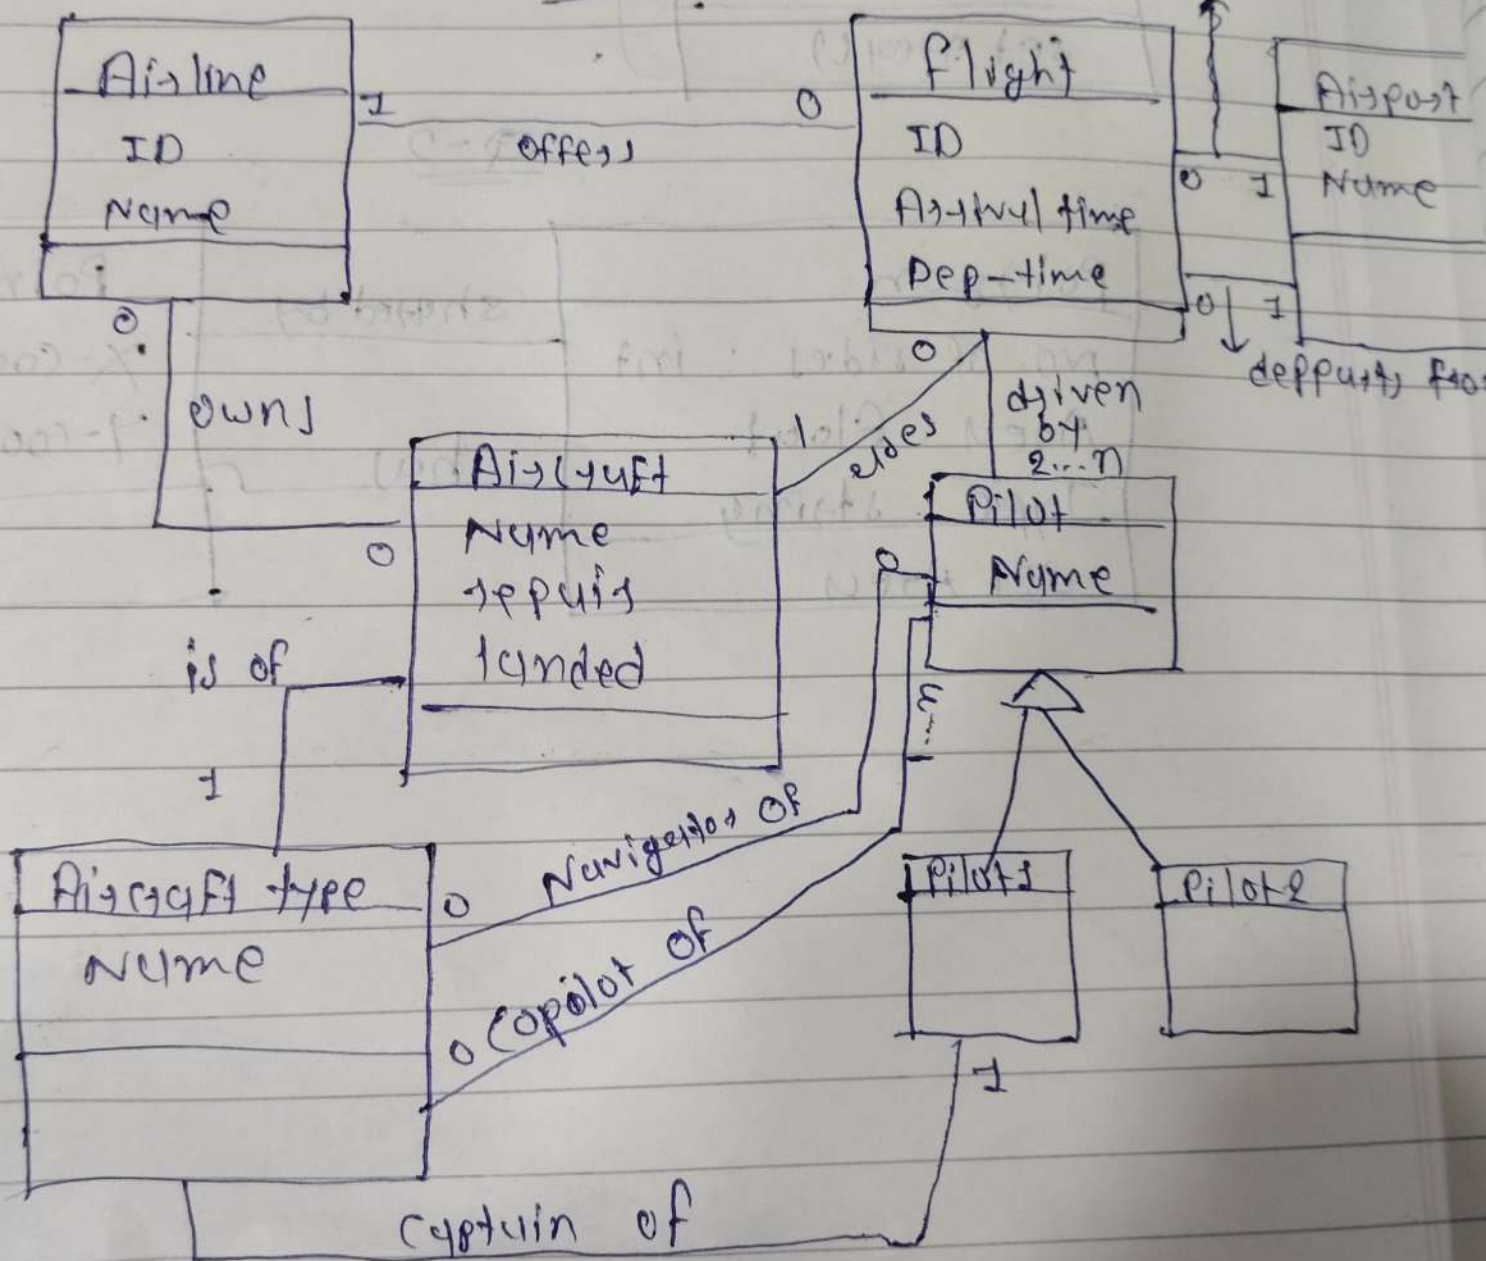 Airline
ID
Name
1
offers
0
Flight
ID
Arrival time
Dep-time
0 1
0 1
Airport
ID
Name
deppart, fro
0
owns
0
Aircraft
Name
repair
landed
1
0
driven
by
2...n
Pilot
Name
0
is of
1
Aircraft type
Name
0
Navigator of
0
Copilot of
Pilot1
Pilot2
1
Captain of